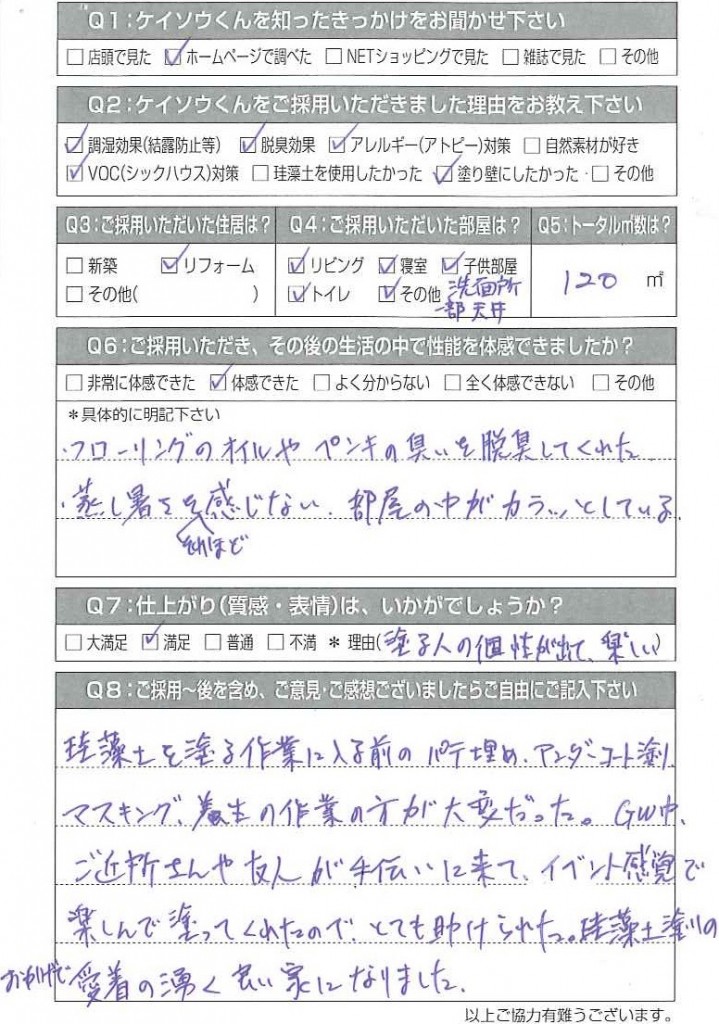 Q1:ケイソウくんを知ったきっかけをお聞かせ下さい
□店頭で見た ☑ホームページで調べた □NETショッピングで見た □雑誌で見た □その他
Q2:ケイソウくんをご採用いただきました理由をお教え下さい
☑調湿効果(結露防止等) ☑脱臭効果 ☑アレルギー(アトピー)対策 □自然素材が好き
☑VOC(シックハウス)対策 □珪藻土を使用したかった ☑塗り壁にしたかった □その他
Q3:ご採用いただいた住居は? Q4:ご採用いただいた部屋は? Q5:トータル㎡数は?
□新築 ☑リフォーム ☑リビング ☑寝室 ☑子供部屋 120 ㎡
□その他( ) ☑トイレ ☑その他 洗面所
一部天井
Q6:ご採用いただき、その後の生活の中で性能を体感できましたか?
□非常に体感できた ☑体感できた □よく分からない □全く体感できない □その他
*具体的に明記下さい
・フローリングのオイルや ペンキの臭いを脱臭してくれた
・蒸し暑さをそれほど感じない、部屋の中がカラッとしている。
Q7:仕上がり(質感・表情)は、いかがでしょうか?
□大満足 ☑満足 □普通 □不満 *理由(塗る人の個性が出て、楽しい)
Q8:ご採用〜後を含め、ご意見・ご感想ございましたらご自由にご記入下さい
珪藻土を塗る作業に入る前のパテ埋め、アンダーコート塗り、
マスキング、養生の作業の方が大変だった。GW中、
ご近所さんや友人が手伝いに来て、イベント感覚で
楽しんで塗ってくれたので、とても助けられた。珪藻土塗りの
おかげで愛着の湧く良い家になりました。
以上ご協力有難うございます。